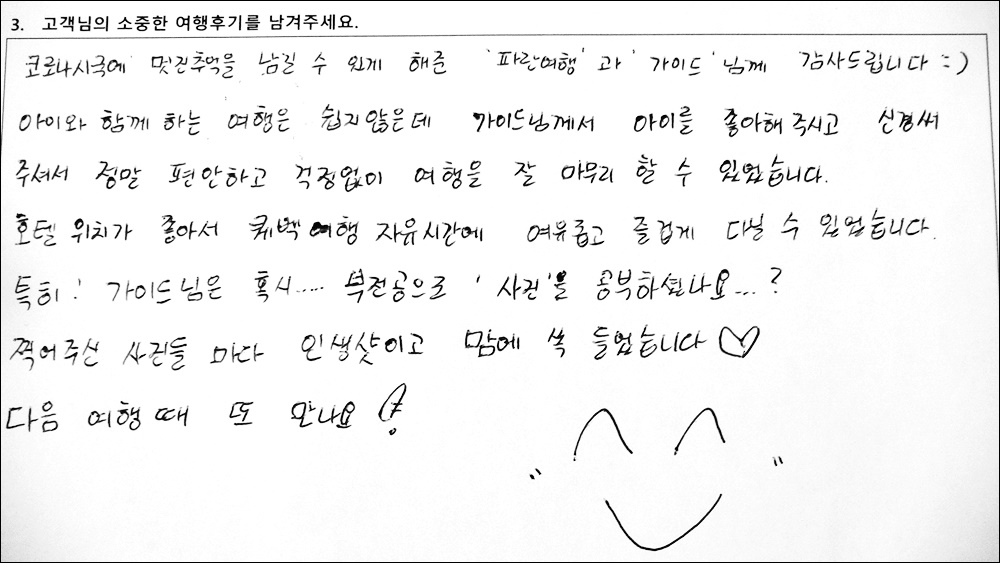 3. 고객님의 소중한 여행후기를 남겨주세요.
코로나시국에 멋진추억을 남길 수 있게 해준 '파란여행'과 '가이드'님께 감사드립니다 :)
아이와 함께 하는 여행은 쉽지않은데 가이드님께서 아이를 좋아해 주시고 신경써
주셔서 정말 편안하고 걱정없이 여행을 잘 마무리 할 수 있었습니다.
호텔 위치가 좋아서 퀘벡여행 자유시간에 여유롭고 즐겁게 다닐 수 있었습니다.
특히! 가이드님은 혹시..... 부전공으로 '사진'을 공부하셨나요...?
찍어주신 사진들 마다 인생샷이고 맘에 쏙 들었습니다 ♡
다음 여행 때 또 만나요!